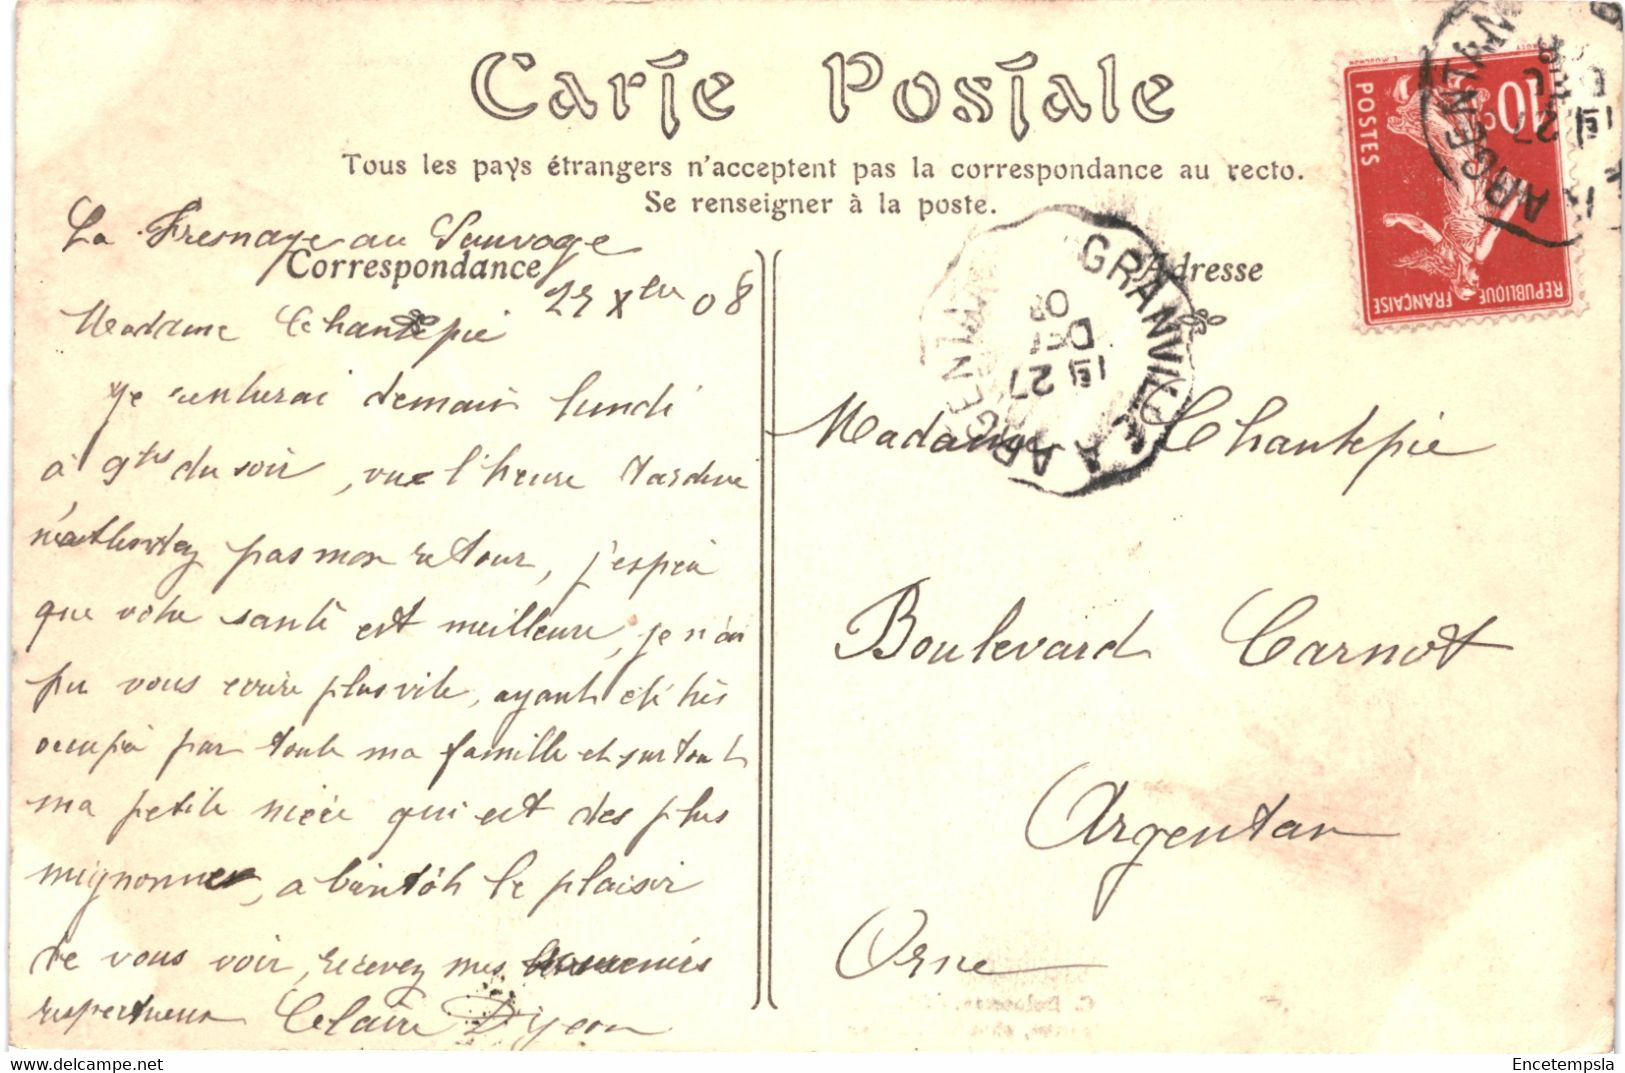 Carte Postale
Tous les pays étrangers n'acceptent pas la correspondance au recto.
Se renseigner à la poste.
La Fresnaye au Sauvage
Correspondance
Xbre 08
Madame Chantepie
Je rentrerai demain lundi
à 9 hres du soir, vue l'heure tardive
n'attendez pas mon retour, j'espère
que votre santé est meilleure, je n'ai
pu vous écrire plus vite, ayant été très
occupée par toute ma famille et surtout
ma petite nièce qui est des plus
mignonnes, a bientôt le plaisir
de vous voir, recevez mes souvenirs
respectueux Claire
Adresse
Madame Chantepie
Boulevard Carnot
Argentan
Orne
POSTES
10c
REPUBLIQUE FRANÇAISE
E. MOUCHON
ARGENTAN
27
GRANVILLE A ARGENTAN
27
DEC
08
Encetempsla